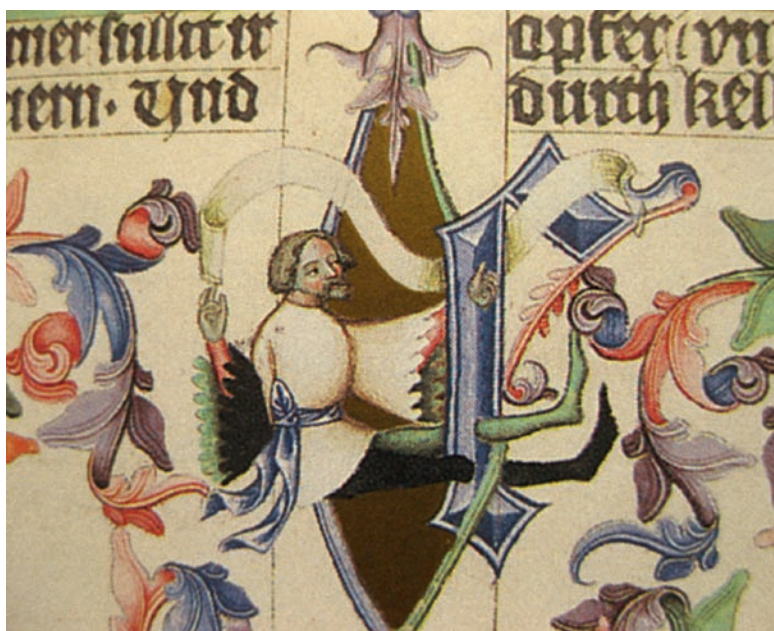 mer sullet ir
iern · Und
opfer / vn
durch kel